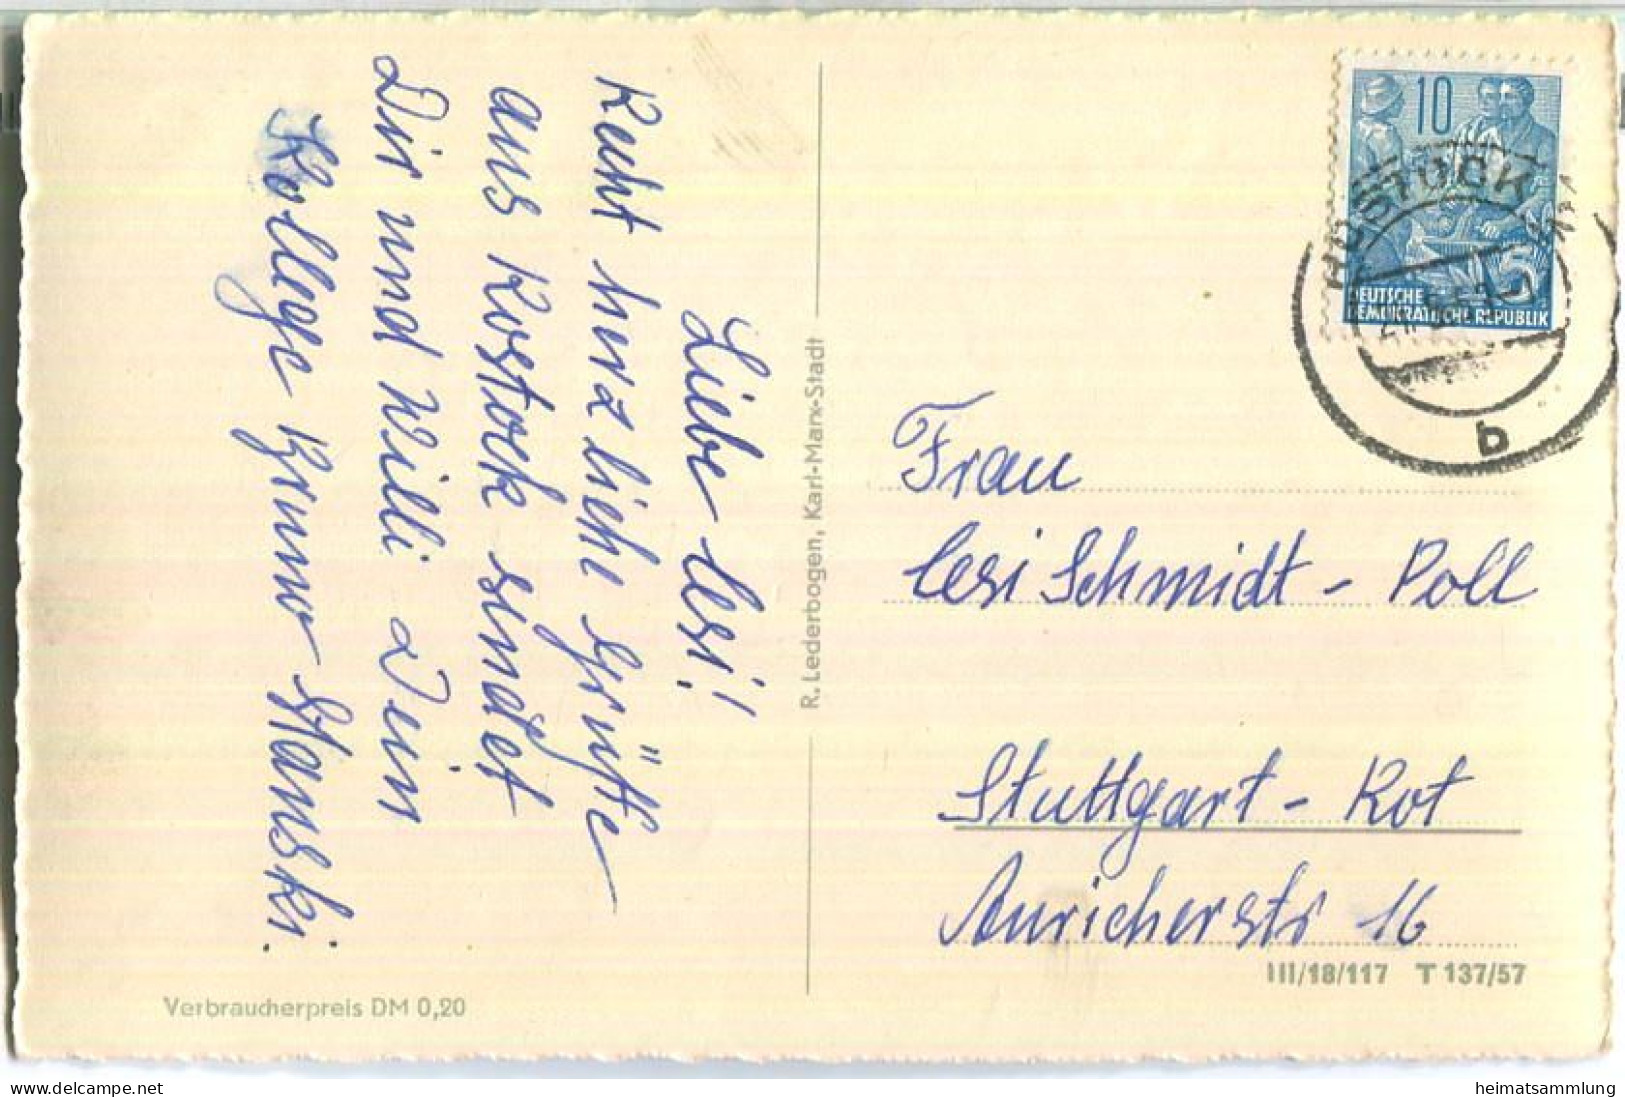 Liebe Cesi!
Recht herzliche Grüße
aus Rostock sendet
Dir und Willi Dein
Kollege Bruno Stanski.
Verbraucherpreis DM 0,20
R. Lederbogen, Karl-Marx-Stadt
10
DEUTSCHE
DEMOKRATISCHE REPUBLIK
5
ROSTOCK
b
Frau
Cesi Schmidt - Poll
Stuttgart - Rot
Auricherstr 16
III/18/117 T 137/57
www.delcampe.net
heimatsammlung